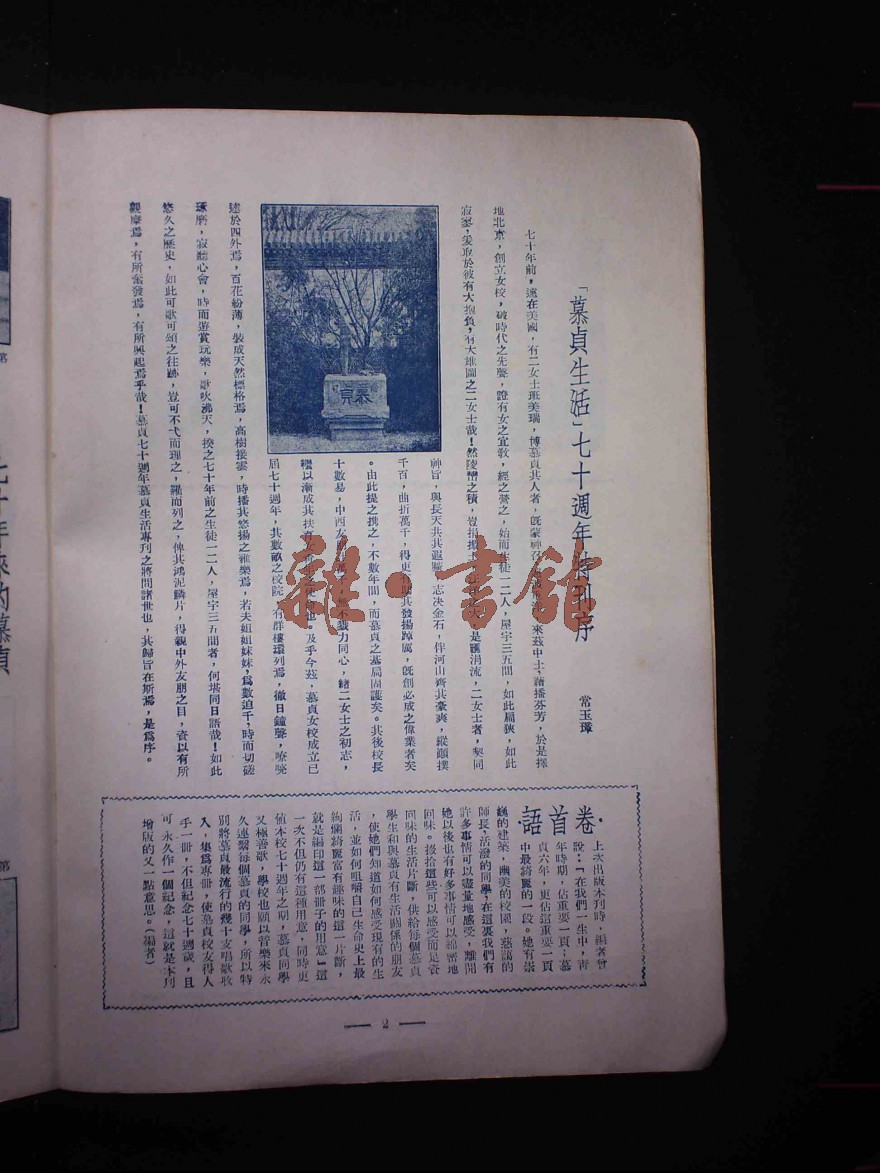 「慕貞生活」七十週年特刊序
常玉璋
七十年前,遠在美國,有二女士班美瑞,博慕貞其人者,既蒙神召 來茲中土,藉播芬芳,於是擇
地北京,創立女校,破時代之先聲,證有女之宜敎,經之營之,始而生徒一二人,屋宇三五間,如此扃狹,如此
寂寥,爰取於彼有大抱負,有大雄圖之二女士哉!然陵 之積,豈 是匯涓流,二女士者,契同
神旨,與長天共其遐 ,志决金石,伴河山齊其豪爽,縱顚撲
千百,曲折萬千,得更 其發揚踔厲,旣創必成之偉業者矣
。由此提之携之,不數年間,而慕貞之基局固護矣。其後校長
十數易,中西友 不戮力同心,緒二女士之初志,
繼以漸成其扶 及乎今茲,慕貞女校成立已
屆七十週年,其數畝之校院,有群樓環列焉,徹日鐘聲,嘹喨
達於四外焉,百花紛薄,裝成天然標格焉,高樹接雲,時播其悠揚之雅樂焉,若夫姐姐妹妹,爲數迫千,時而切磋
琢磨,寂聽心會,時而遊賞玩樂,歌吹沸天,揆之七十年前之生徒一二人,屋宇三五間者,何堪同日語哉!如此
悠久之歷史,如此可歌可頌之往跡,豈可不弋而理之,羅而列之,俾其鴻泥鱗片,得親中外友朋之目,資以有所
觀摩焉,有所奮發焉,有所興起焉乎哉!慕貞七十週年慕貞生活專刊之將問諸世也,其歸旨在斯焉,是爲序。
慕貞
雜·書館
卷首語
上次出版本刊時,編者曾
說:「在我們一生中,靑
年時期,佔重要一頁;慕
貞六年,更佔這重要一頁
中最綺麗的一段。她有崇
巍的建築,幽美的校園,慈藹的
師長,活潑的同學,在這裏我們有
許多事情可以盡量地感受,離開
她以後也有好多事情可以綿密地
回味。掇拾這些可以感受而足資
回味的生活片斷,供給每個慕貞
學生和與慕貞有生活關係的朋友
,使她們知道如何感受現有的生
活,並如何咀嚼自己生命史上最
絢爛綺麗富有趣味的這一片斷,
就是編印這一部册子的用意」這
一次不但仍有這種用意,同時更
値本校七十週年之期,慕貞同學
又極善歌,學校也願以管樂來永
久連繫每個慕貞的同學,所以特
別將慕貞最流行的幾十支唱歌收
入,集爲專冊,使慕貞校友得人
手一冊,不但紀念七十週歲,且
可永久作一個紀念,這就是本刊
增版的又一點意思。(編者)
— 2 —